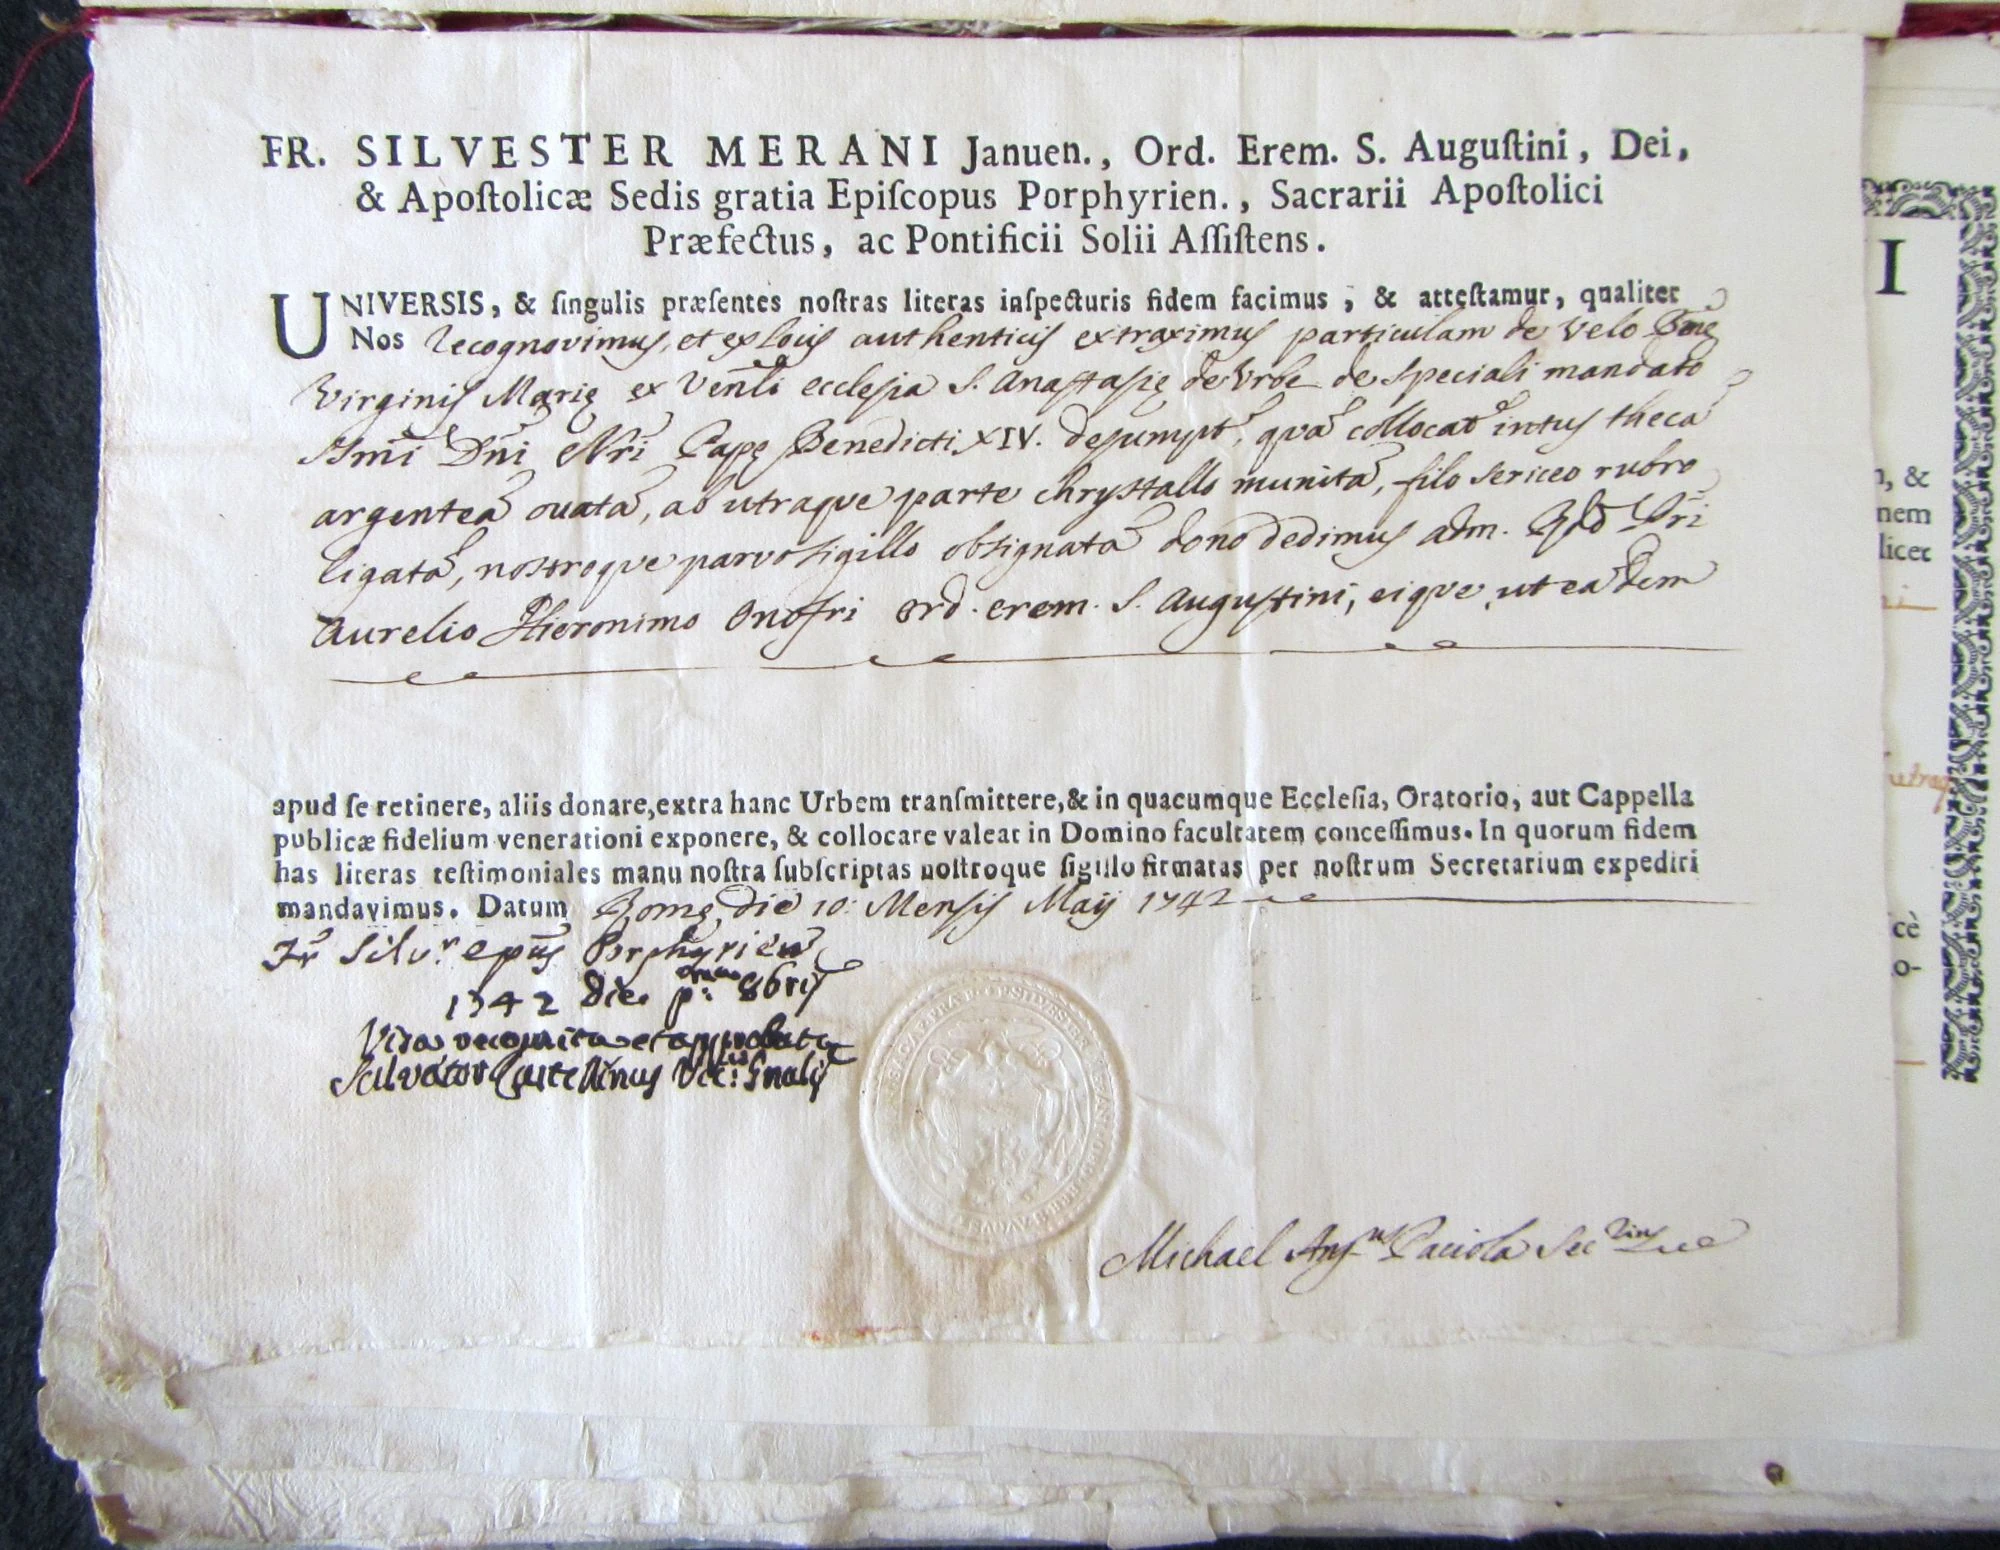 FR. SILVESTER MERANI Januen., Ord. Erem. S. Auguſtini, Dei,
& Apoſtolicæ Sedis gratia Epiſcopus Porphyrien., Sacrarii Apoſtolici
Præfectus, ac Pontificii Solii Aſſiſtens.
UNIVERSIS, & ſingulis præſentes noſtras literas inſpecturis fidem facimus, & atteſtamur, qualiter
Nos recognovimus, et ex locis authenticis extraximus particulam de Velo Bmę
Virginis Marię ex Venli ecclesia S. Anastasię de Urbe de speciali mandato
Smi Dni Nri Papę Benedicti XIV. desumpt, quā collocat intus theca
argenteā ovatā, ab utraque parte chrystallo munitā, filo sericeo rubro
ligatā, nostroque parvo sigillo obsignatā dono dedimus adm. Rdo Pri
Aurelio Hieronimo Onofri Ord. Erem. S. Augustini, eique, ut eādem
apud ſe retinere, aliis donare, extra hanc Urbem tranſmittere, & in quacumque Eccleſia, Oratorio, aut Cappella
publicæ fidelium venerationi exponere, & collocare valeat in Domino facultatem conceſſimus. In quorum fidem
has literas teſtimoniales manu noſtra ſubſcriptas noſtroque ſigillo firmatas per noſtrum Secretarium expediri
mandavimus. Datum Romę die 10. Mensis Maij 1742
Fr Silvr epūs Porphyrien
1742 die pa 8bris
Visa recognita et approbata
Salvator Castellinus Vic: Gnalis
Michael Angus Paciola Sec
I
n, &
nem
licet
utraq
cè
o-